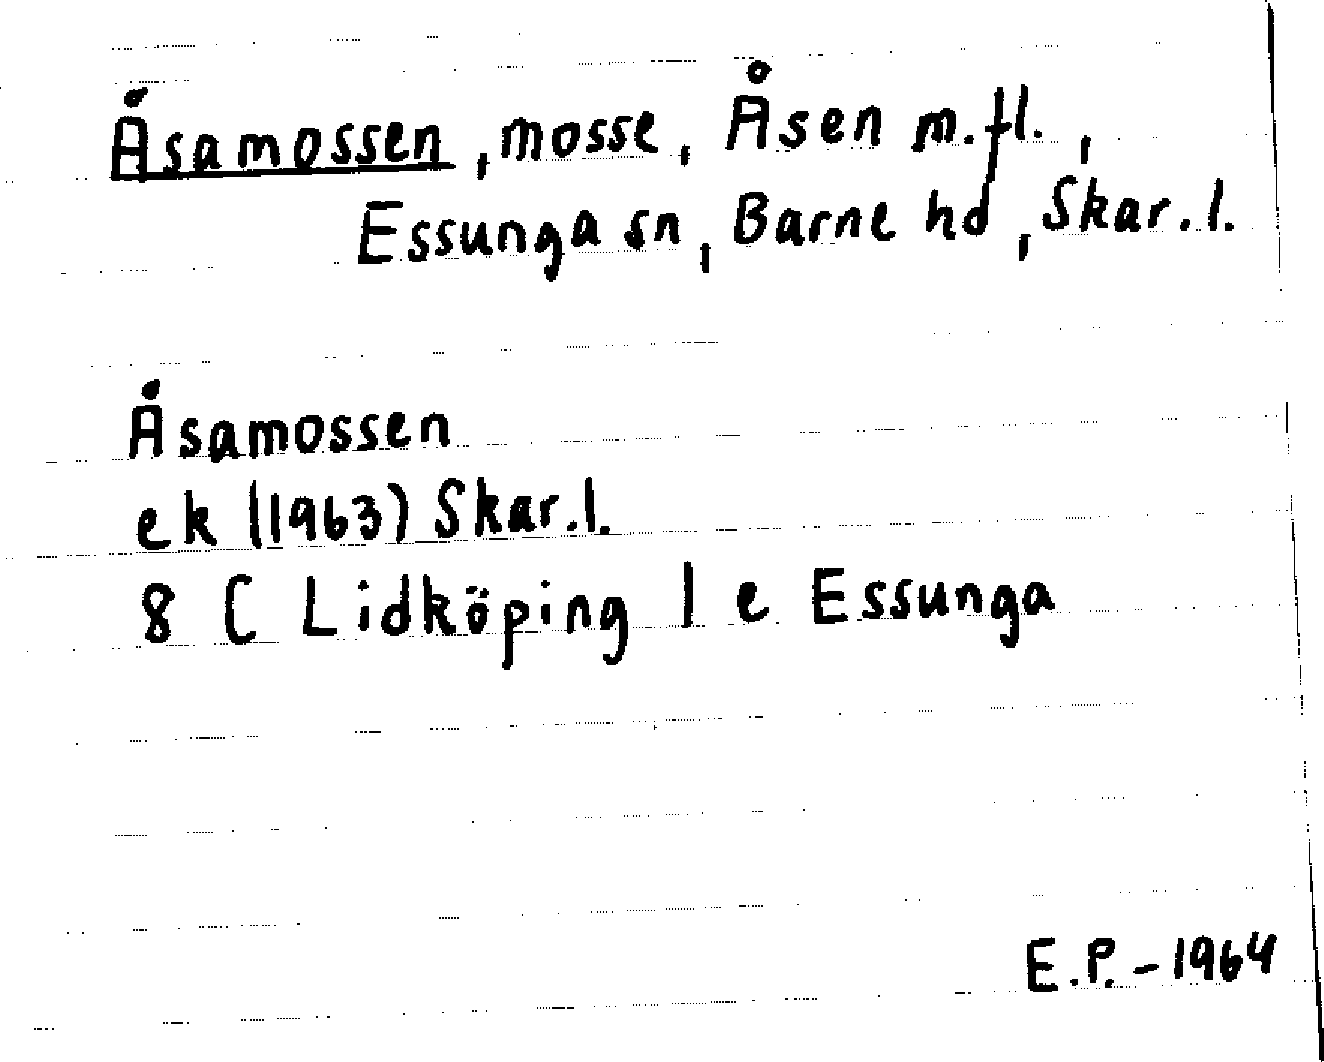 Åsamossen, mosse, Åsen m.fl.,
Essunga sn, Barne hd, Skar.l.
Åsamossen
ek (1963) Skar.l.
8 C Lidköping 1 e Essunga
E.P. - 1964